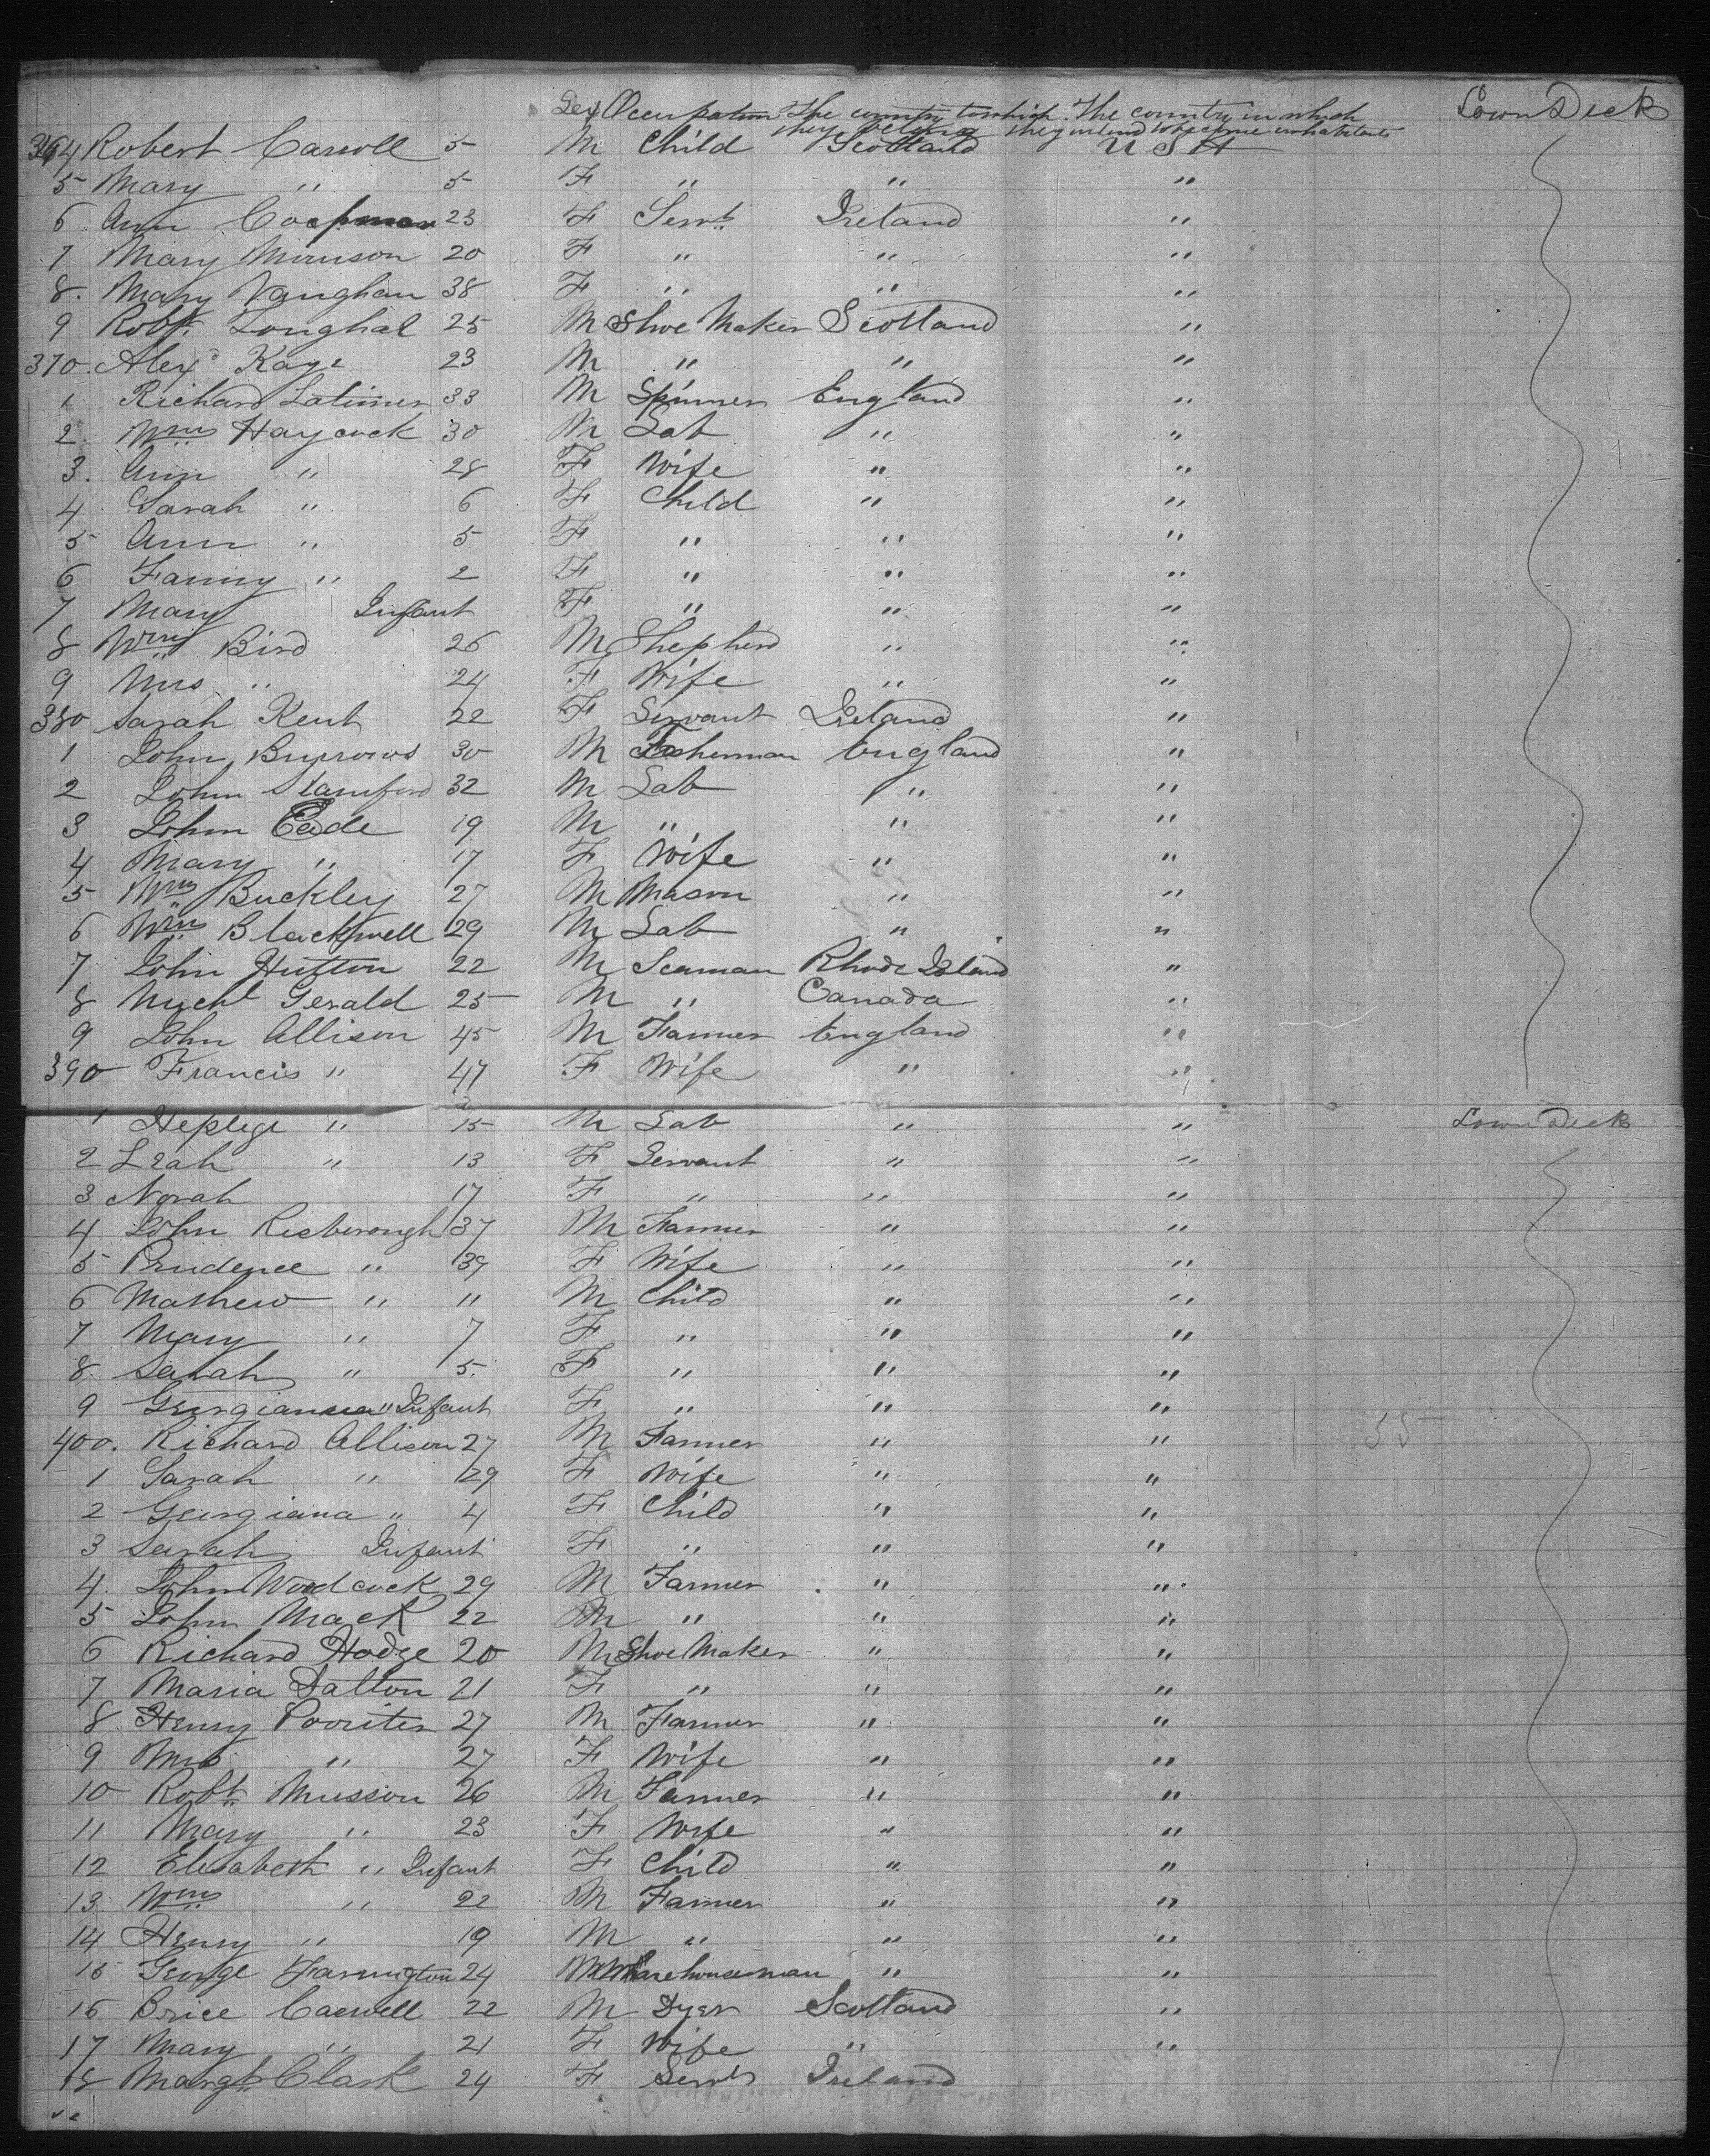 Sex Occupation The country to which The country in which Lown Deck
they belong they intend to become inhabitants
364 Robert Carroll 5 M Child Scotland U S A
5 Mary " 5 F " " "
6 Ann 23 F Servt Ireland "
7 Mary 20 F " " "
8. Mary Vaughan 38 F " " "
9 Robt Longhal 25 M Shoe Maker Scotland "
370. Alexr Kaye 23 M " " "
1 Richard Latimer 33 M Spinner England "
2. Wm Haycock 30 M Lab " "
3. Ann " 28 F Wife " "
4 Sarah " 6 F Child " "
5 Ann " 5 F " " "
6 Fanny " 2 F " " "
7 Mary Infant F " " "
8 Wm Bird 26 M Shepherd " "
9 Mrs " 24 F Wife " "
380 Sarah Kent 22 F Servant Ireland "
1 John Burrows 30 M England "
2 John Stamford 32 M Lab " "
3 John Eade 19 M " " "
4 Mary " 17 F Wife " "
5 Wm Buckley 27 M Mason " "
6 Wm Blackwell 29 M Lab " "
7 John Hutton 22 M Seaman Rhode Island "
8 Mychl Gerald 25 M " Canada "
9 John Allison 45 M Farmer England "
390 Francis " 47 F Wife " "
1 " 15 M Lab " " Lown Deck
2 Leah " 13 F Servant " "
3 Norah 17 F " " "
4 John Risborough 37 M Farmer " "
5 Prudence " 39 F Wife " "
6 Mathew " 11 M Child " "
7 Mary " 7 F " " "
8. Sarah " 5. F " " "
9 Georgianna " Infant F " " "
400. Richard Allison 27 M Farmer " " 55
1 Sarah " 29 F Wife " "
2 Georgiana " 4 F Child " "
3 Sarah Infant F " " "
4. John Woodcock 29 M Farmer " "
5 John Mack 22 M " " "
6 Richard Hodge 20 M Shoe Maker " "
7 Maria Dalton 21 F " " "
8. Henry 27 M Farmer " "
9 Mrs " 27 F Wife " "
10 Robt Musson 26 M Farmer " "
11 Mary " 23 F Wife " "
12 Elisabeth " Infant F Child " "
13. Wm " 22 M Farmer " "
14 Henry " 19 M " " "
15 George Farmington 24 M Warehouseman " "
16 Brice 22 M Dyer Scotland "
17 Mary " 21 F Wife " "
18 Margt Clark 24 F Servt Ireland